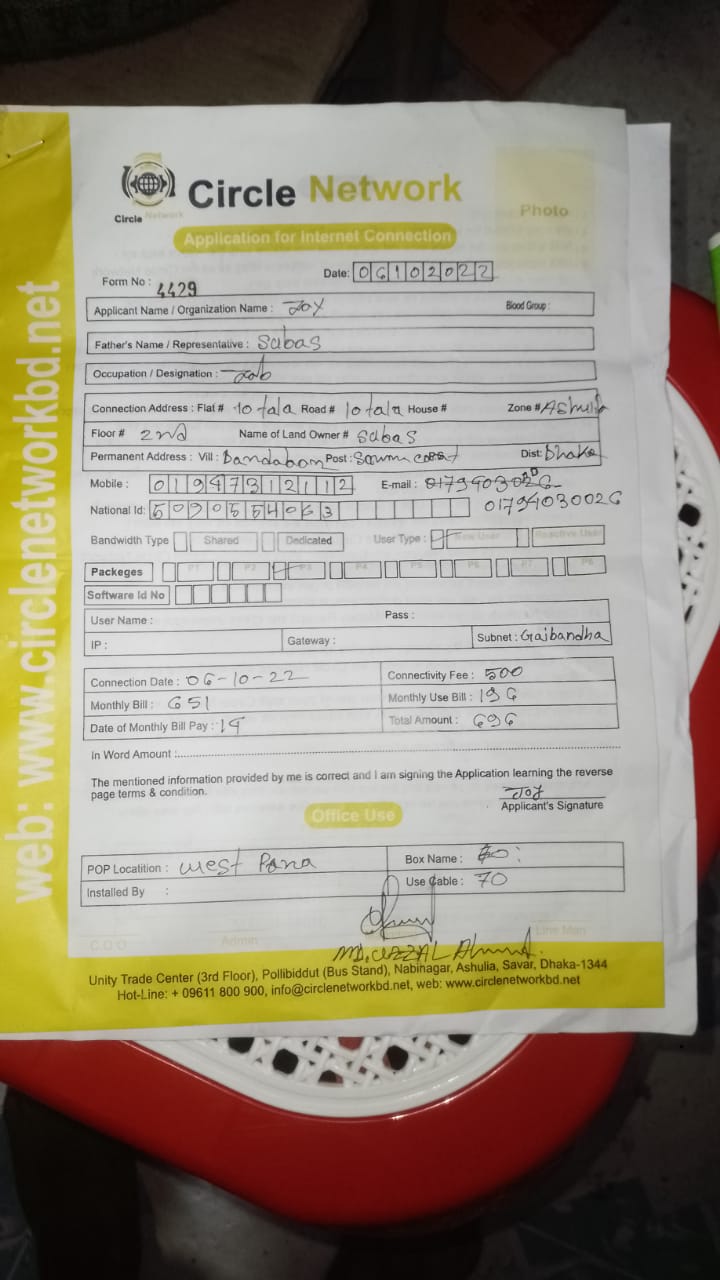 web: www.circlenetworkbd.net
Circle Network
Circle Network
Photo
Application for Internet Connection
Form No : 4429
Date: 06102022
Applicant Name / Organization Name : Joy Blood Group :
Father's Name / Representative : Sabas
Occupation / Designation : Job
Connection Address : Flat # 10 tala Road # 10 tala House # Zone # Ashulia
Floor # 2nd Name of Land Owner # Sabas
Permanent Address : Vill : Post : Dist: Dhaka
Mobile : 01947312112 E-mail :
National Id: 5090554063 01794030026
Bandwidth Type Shared Dedicated User Type : New User Reactive User
Packeges P1 P2 P3 P4 P5 P6 P7 P8
Software Id No
User Name : Pass :
IP : Gateway : Subnet : Gaibandha
Connection Date : 06-10-22 Connectivity Fee : 500
Monthly Bill : 651 Monthly Use Bill : 196
Date of Monthly Bill Pay : 19 Total Amount : 696
In Word Amount :
The mentioned information provided by me is correct and I am signing the Application learning the reverse
page terms & condition.
Joy
Applicant's Signature
Office Use
POP Locatition : West Para Box Name :
Installed By : Use Cable : 70
C.O.O Admin Line Man
MD. UZZAL Ahmed.
Unity Trade Center (3rd Floor), Pollibiddut (Bus Stand), Nabinagar, Ashulia, Savar, Dhaka-1344
Hot-Line: + 09611 800 900, info@circlenetworkbd.net, web: www.circlenetworkbd.net